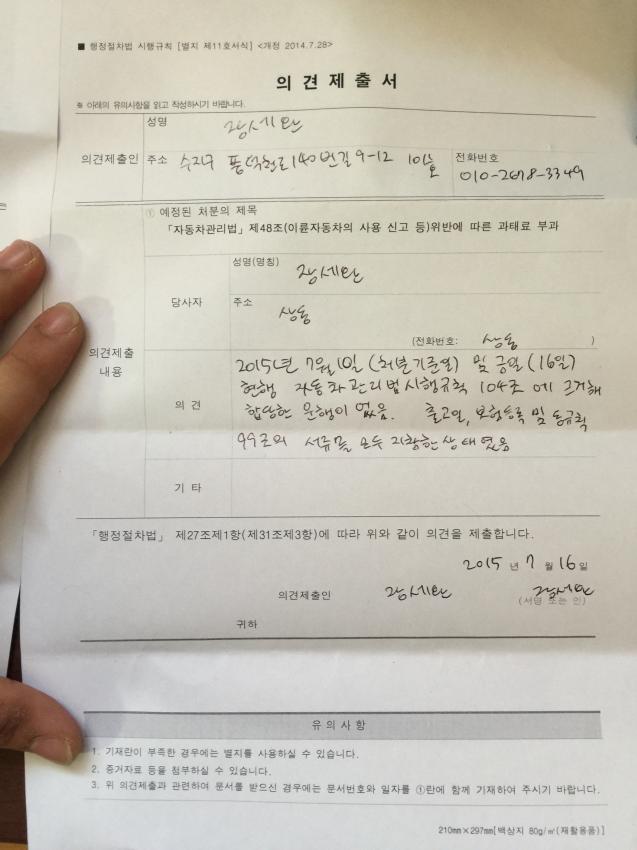 ■ 행정절차법 시행규칙 [별지 제11호서식] <개정 2014.7.28>
의 견 제 출 서
※ 아래의 유의사항을 읽고 작성하시기 바랍니다.
의견제출인
성명 장세완
주소 수지구 풍덕천로140번길 9-12 101호
전화번호 010-2678-3349
의견제출 내용
① 예정된 처분의 제목
「자동차관리법」 제48조(이륜자동차의 사용 신고 등)위반에 따른 과태료 부과
당사자
성명(명칭) 장세완
주소 상동
(전화번호: 상동 )
의 견
2015년 7월 1일 (처분기준일) 및 금일 (16일)
현행 자동차관리법시행규칙 104조에 근거해
합당한 운행이 없음. 출고일, 보험등록 및 동규칙
99조의 서류를 모두 지황한 상태였음
기 타
「행정절차법」 제27조제1항(제31조제3항)에 따라 위와 같이 의견을 제출합니다.
2015 년 7 월 16 일
의견제출인 장세완 장세완
(서명 또는 인)
귀하
유 의 사 항
1. 기재란이 부족한 경우에는 별지를 사용하실 수 있습니다.
2. 증거자료 등을 첨부하실 수 있습니다.
3. 위 의견제출과 관련하여 문서를 받으신 경우에는 문서번호와 일자를 ①란에 함께 기재하여 주시기 바랍니다.
210mm×297mm[백상지 80g/㎡(재활용품)]